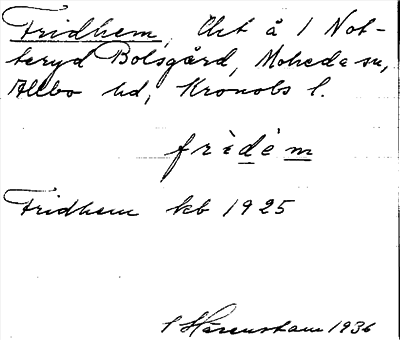 Fridhem, Lht å 1 Not-
teryd Bolsgård, Moheda sn,
Allbo hd, Kronobs l.
frìdèm
Fridhem kb 1925
1936